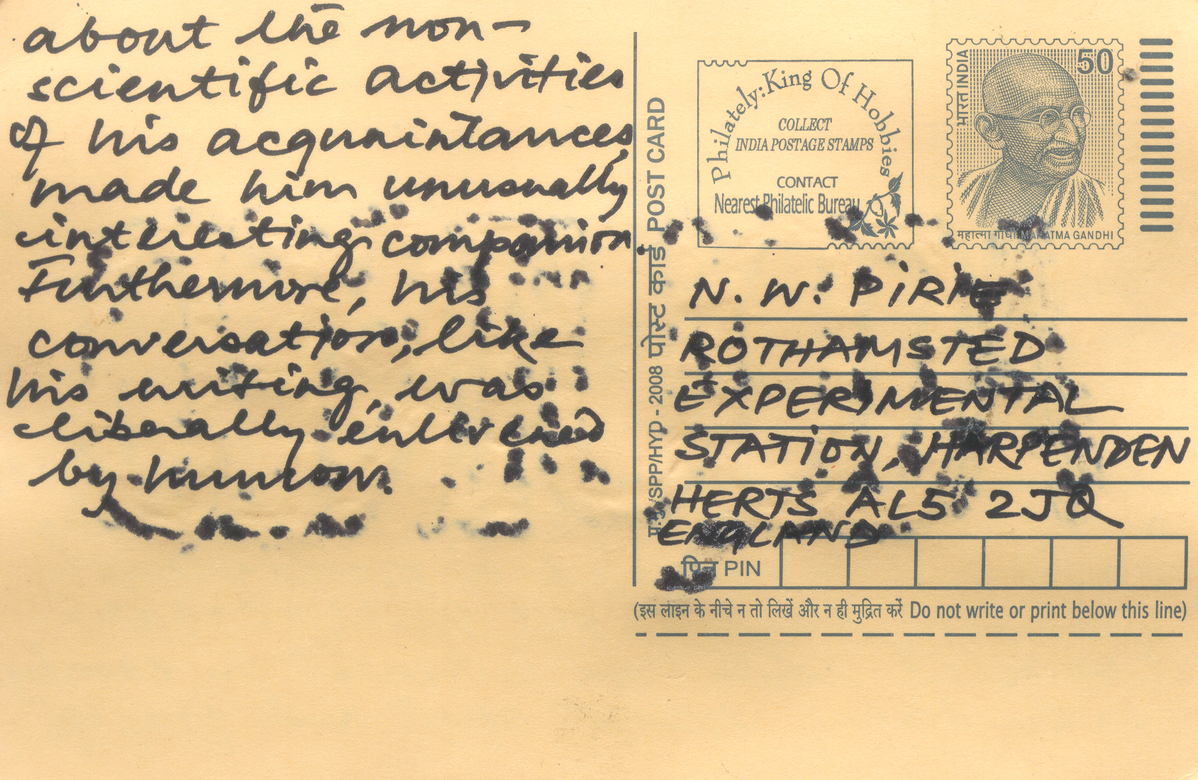 about the non-
scientific activities
of his acquaintances
made him unusually
interesting companion.
Furthermore, his
conversation, like
his writing, was
liberally enlivened
by humour.
Philately: King Of Hobbies
COLLECT
INDIA POSTAGE STAMPS
CONTACT
Nearest Philatelic Bureau
भारत INDIA
50
महात्मा गांधी MAHATMA GANDHI
/SPP/HYD - 2008 पोस्ट कार्ड POST CARD
N. W. PIRIE
ROTHAMSTED
EXPERIMENTAL
STATION, HARPENDEN
HERTS AL5 2JQ
ENGLAND
पिन PIN
(इस लाइन के नीचे न तो लिखें और न ही मुद्रित करें Do not write or print below this line)